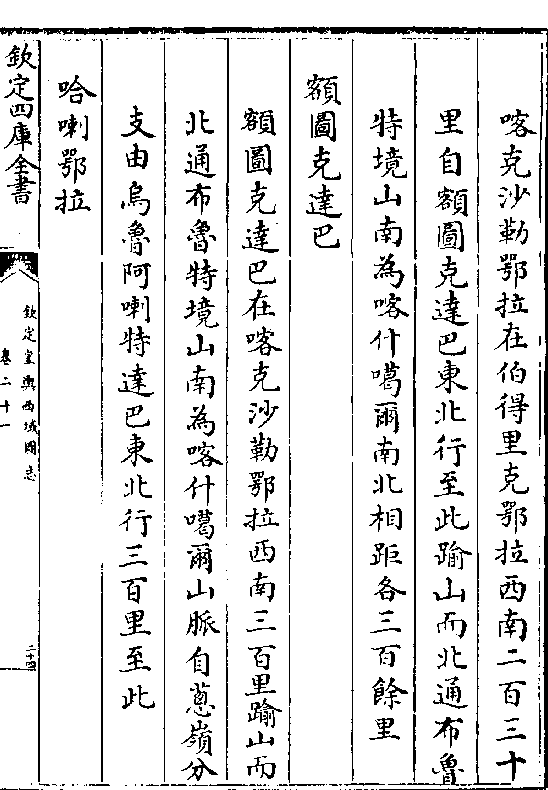 喀克沙勒鄂拉在伯得里克鄂拉西南二百三十
里自額圖克達巴東北行至此踰山而北通布魯
特境山南為喀什噶爾南北相距各三百餘里
額圖克達巴
額圖克達巴在喀克沙勒鄂拉西南三百里踰山而
北通布魯特境山南為喀什噶爾山脈自蔥嶺分
支由烏魯阿喇特達巴東北行三百里至此
哈喇鄂拉
欽定四庫全書
欽定皇輿西域圖志
卷二十一
二十四